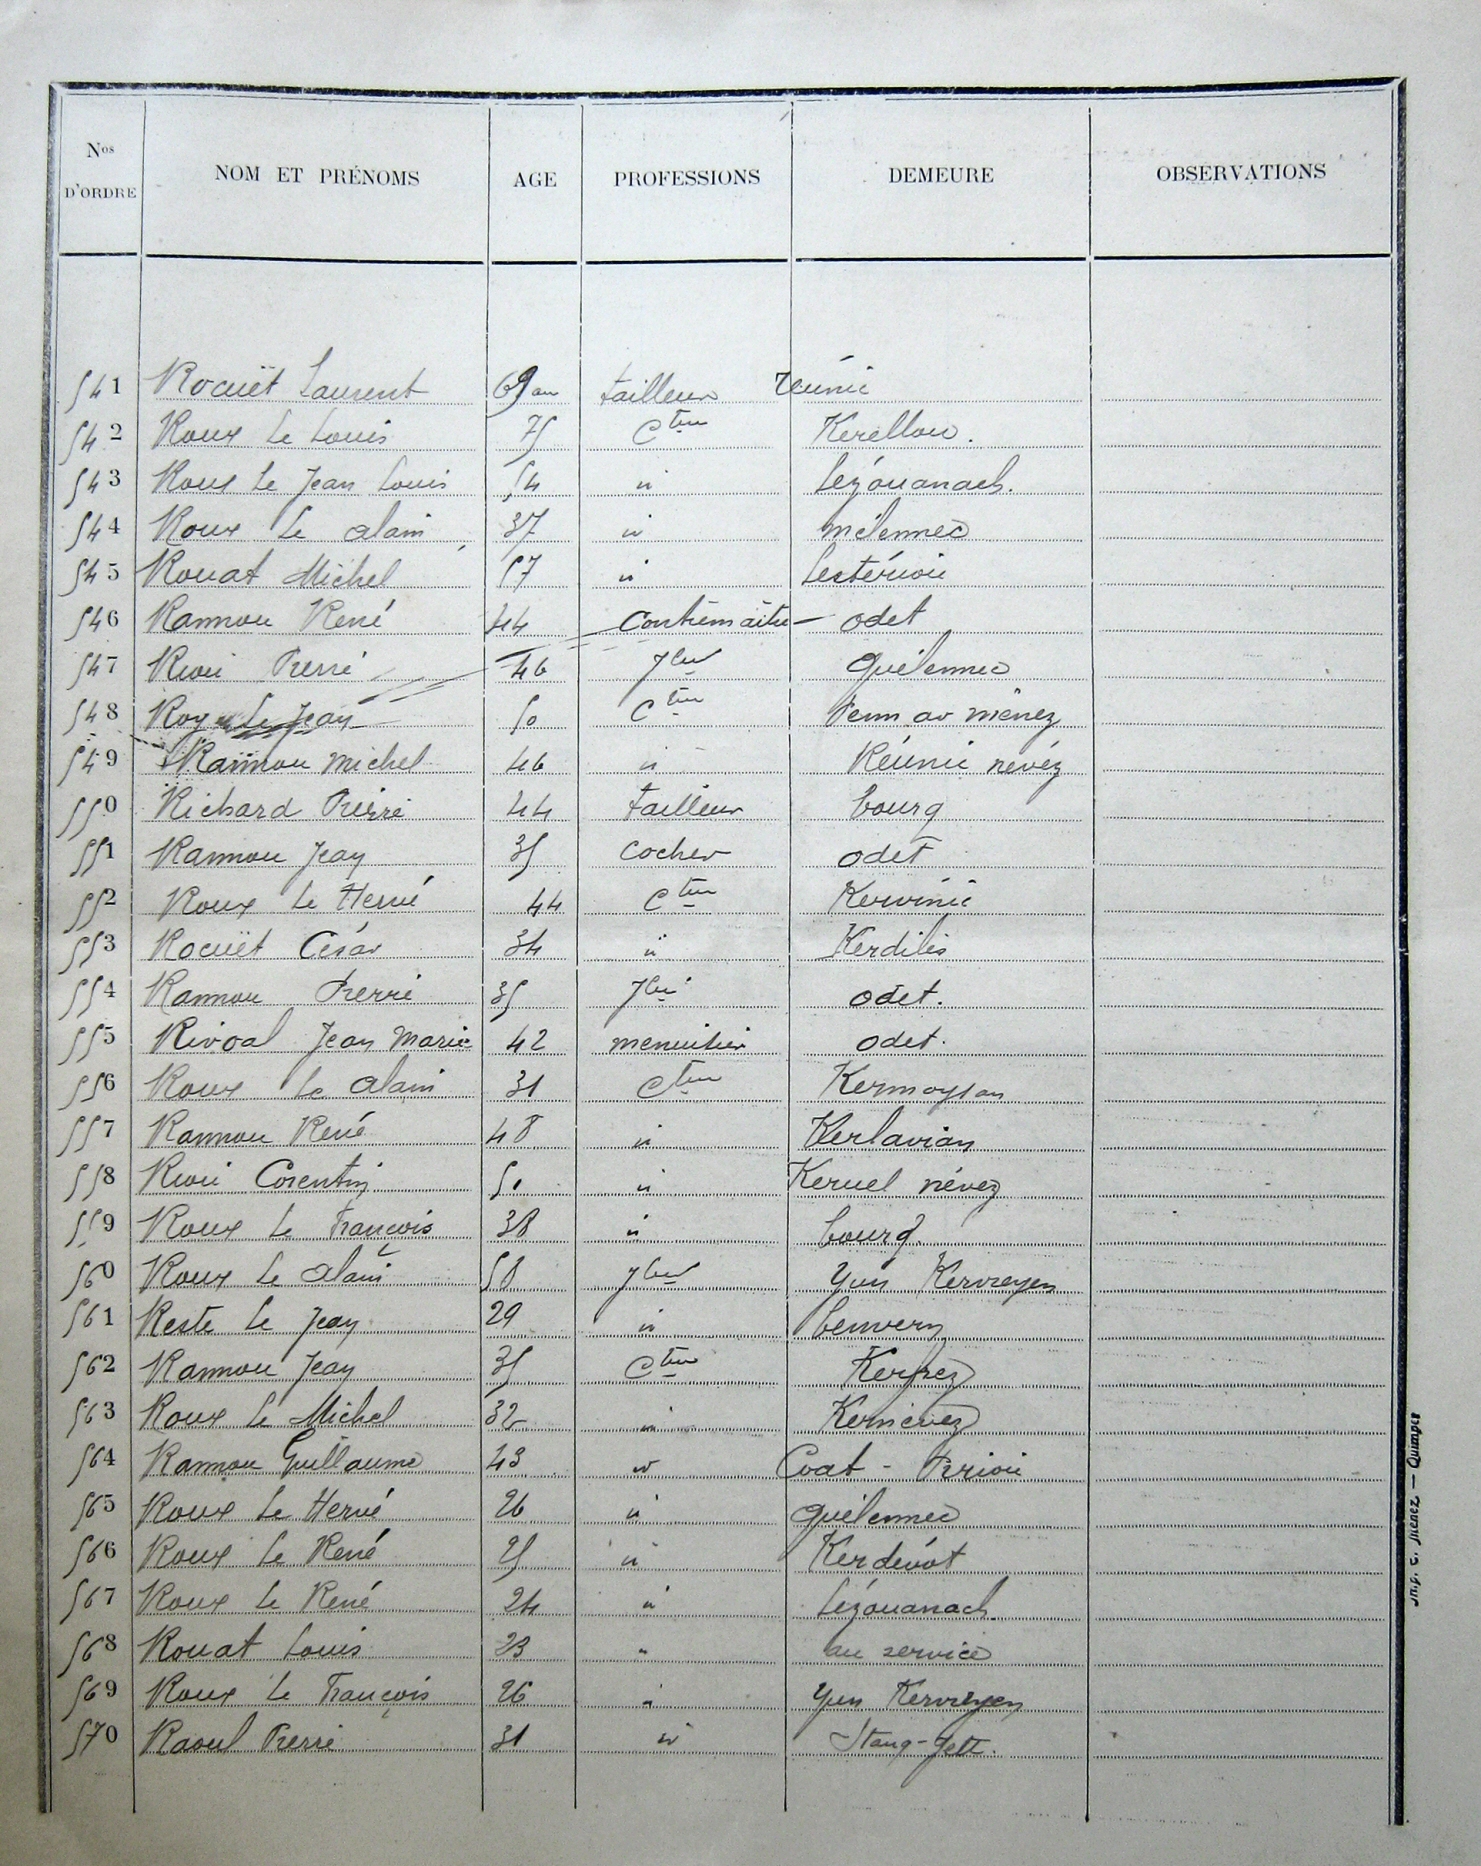 Nos D'ORDRE NOM ET PRÉNOMS AGE PROFESSIONS DEMEURE OBSERVATIONS
541 Rocuët Laurent 69 ans tailleur Réunic
542 Roux Le Louis 75 Cteur Kerellou.
543 Roux Le Jean Louis 54 " Lézouanach.
544 Roux Le alain 37 " mélennec
545 Rouat Michel 57 " Lestérioü
546 Rannou René 44 Contremaître odet
547 Riou Pierre 46 Jlier Guélennec
548 Roy Le Jean 50 Cteur Penn ar menez
549 Rannou Michel 46 " Réunic névéz
550 Richard Pierre 44 tailleur bourg
551 Rannou Jean 35 cocher odet
552 Roux Le Hervé 44 Cteur Kervinic
553 Rocuët César 34 " Kerdilès
554 Rannou Pierre 35 Jlier odet.
555 Rivoal Jean Marie 42 menuisier odet.
556 Roux Le alain 31 Cteur Kermoysan
557 Rannou René 48 " Kerlavian
558 Riou Corentin 50 " Keruel névez
559 Roux Le François 38 " bourg.
560 Roux Le alain 58 Jlier Yun Kervreyen
561 Reste Le Jean 29 " benvern
562 Rannou Jean 35 Cteur Kerfrez
563 Roux Le Michel 32 " Kernevez
564 Rannou Guillaume 43 " Coat - Piriou
565 Roux Le Hervé 26 " Guélennec
566 Roux Le René 25 " Kerdévot
567 Roux Le René 24 " Lézouanach
568 Rouat Louis 23 " au service
569 Roux Le François 26 " Yun Kervreyen
570 Raoul Pierre 31 " Stang-Jett.
Imp. C. MENEZ — Quimper